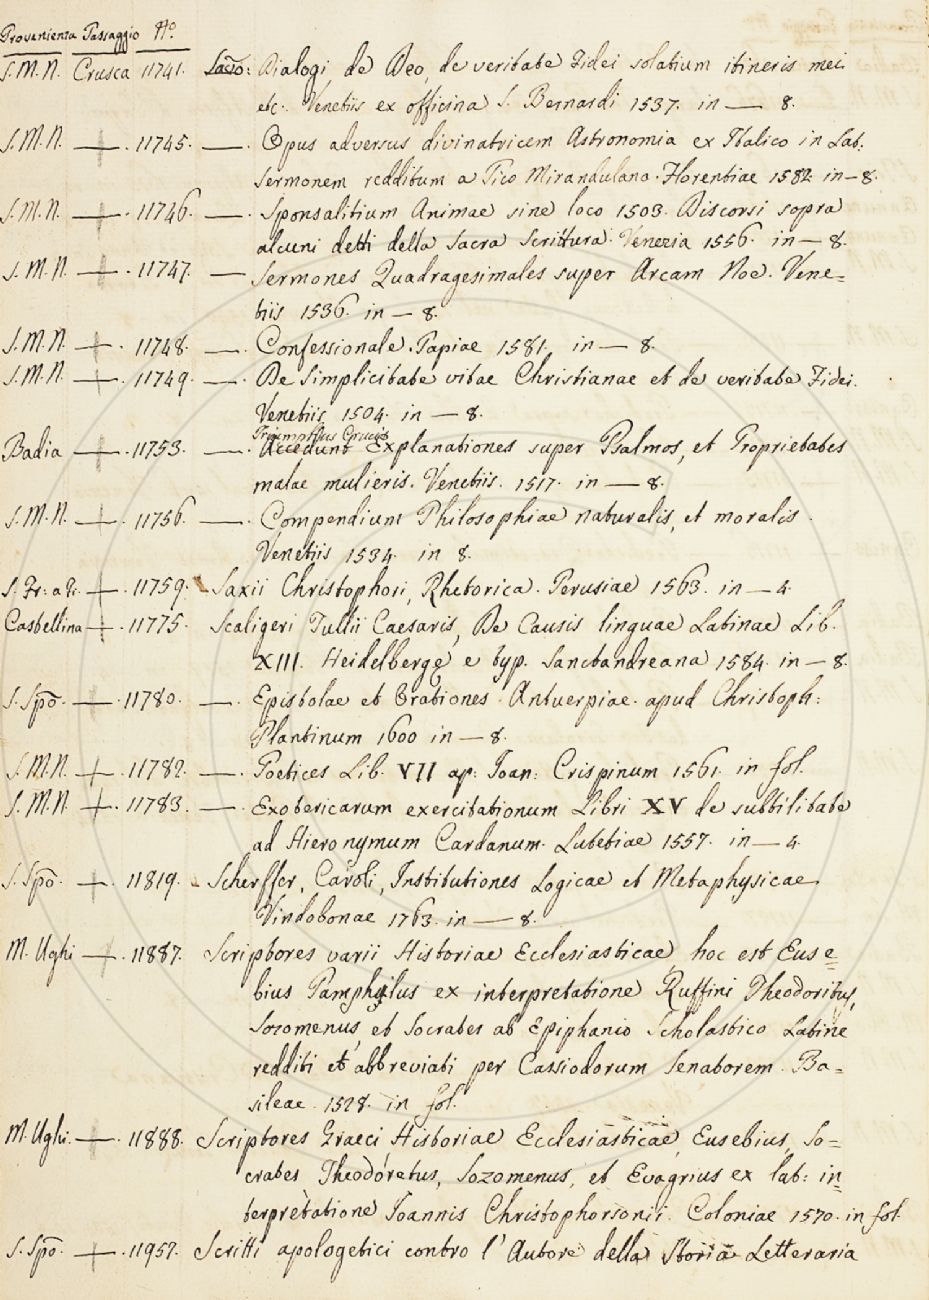 Provenienza Passaggio No.
S. M. N. Crusca 11741. Savo: Dialogi de Deo, de veritate Fidei solatium itineris mei
etc. Venetiis ex officina S. Bernardi 1537. in — 8.
S. M. N. — . 11745. — . Opus adversus divinatricem Astronomia ex Italico in Lat.
sermonem redditum a Pico Mirandulano. Florentiae 1582 in — 8.
S. M. N. — . 11746. — . Sponsalitium Animae sine loco 1503. Discorsi sopra
alcuni detti della Sacra Scrittura. Venezia 1556. in — 8.
S. M. N. — . 11747. — Sermones Quadragesimales super Arcam Noe. Vene=
tiis 1536. in — 8.
S. M. N. — . 11748. — . Confessionale. Papiae 1581. in — 8.
S. M. N. — . 11749. — . De Simplicitate vitae Christianae et de veritate Fidei.
Venetiis 1504. in — 8.
Triumphus Crucis
Badia — . 11753. — . Accedunt Explanationes super Psalmos, et Proprietates
malae mulieris. Venetiis. 1517. in — 8.
S. M. N. — . 11756. — . Compendium Philosophiae naturalis, et moralis.
Venetiis 1534. in 8.
S. Fr: a Ri. — . 11759. Saxii Christophori, Rhetorica. Perusiae 1563. in — 4.
Castellina — . 11775. Scaligeri Tullii Caesaris, De Causis linguae Latinae Lib.
XIII. Heidelbergę e typ. Sanctandreana 1584. in — 8.
S. Spõ. — . 11780. — . Epistolae et Orationes. Antuerpiae. apud Christoph:
Plantinum 1600 in — 8.
S. M. N. — . 11782. — . Poetices Lib. VII ap: Joan: Crispinum 1561. in fol.
S. M. N. — . 11783. — . Exotericarum exercitationum Libri XV de subtilitate
ad Hieronymum Cardanum. Lutetiae 1557. in — 4.
S. Spõ. — . 11819. Scherffer, Caroli, Institutiones Logicae et Metaphysicae.
Vindobonae 1763. in — 8.
M. Ughi — . 11887. Scriptores varii Historiae Ecclesiasticae hoc est Euse=
bius Pamphilus ex interpretatione Ruffini Theodoritus,
Sozomenus et Socrates ab Epiphanio Scholastico Latine
redditi et abbreviati per Cassiodorum Senatorem. Ba=
sileae. 1528. in fol.
M. Ughi. — . 11888. Scriptores Graeci Historiae Ecclesiasticae, Eusebius, So=
crates Theodoretus, Sozomenus, et Evagrius ex lat: in=
terpretatione Joannis Christophorsonii. Coloniae 1570. in fol.
S. Spõ. — . 11957. Scritti apologetici contro l'Autore della Storia Letteraria